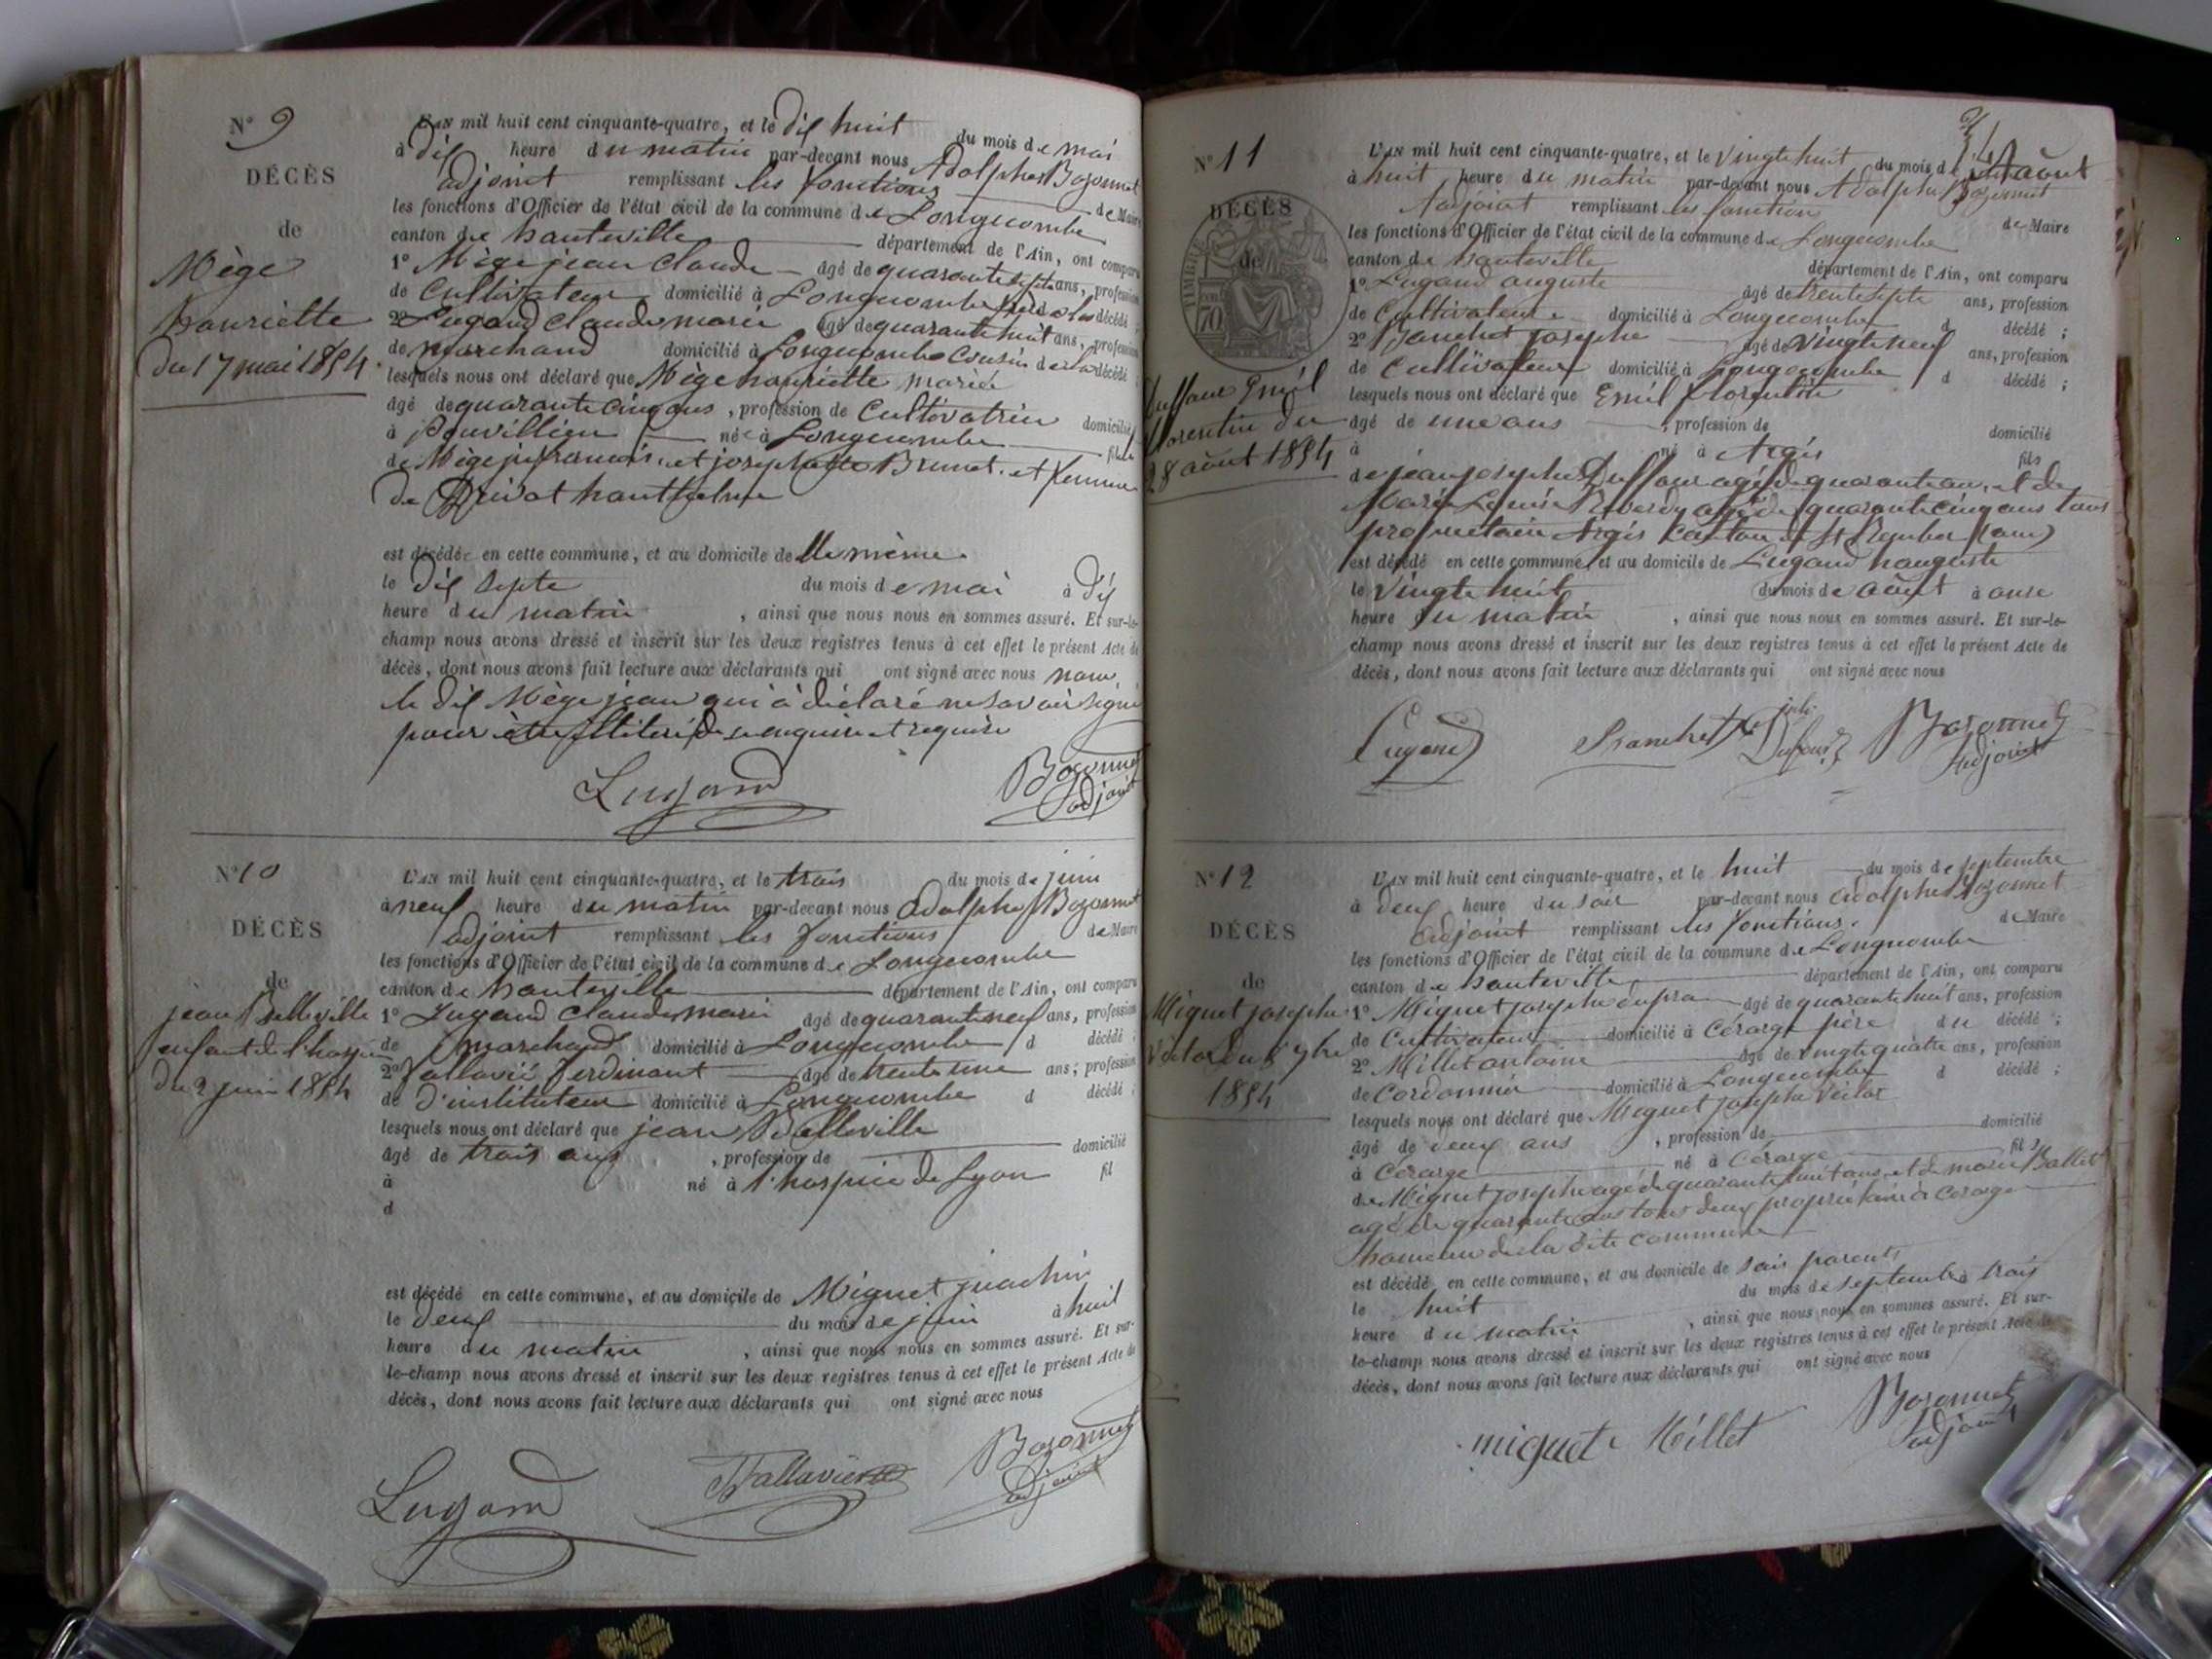 N° 9
DÉCÈS
de
Mège
hanriette
Du 17 mai 1854
L'AN mil huit cent cinquante-quatre, et le dix huit du mois de mai
à dix heure du matin par-devant nous Adolphe Bozonnet
adjoint remplissant les fonctions de Maire
les fonctions d'Officier de l'état civil de la commune de Longecombe
canton de hauteville département de l'Ain, ont comparu
1° Mège jean Claude âgé de quarante sept ans, profession
de Cultivateur domicilié à Longecombe décédé ;
2° Lugand Claude marie âgé de quarante huit ans, profession
de marchand domicilié à Longecombe Cousin de la décédé
lesquels nous ont déclaré que Mège hanriette mariée
âgé de quarante cinq ans, profession de Cultivatrice domicilié
à né à Longecombe
de Mège et josephatte Brunet et femme
de
est décédée en cette commune, et au domicile de elle même
le dix septe du mois de mai à dix
heure du matin, ainsi que nous nous en sommes assuré. Et sur-le-
champ nous avons dressé et inscrit sur les deux registres tenus à cet effet le présent Acte de
décès, dont nous avons fait lecture aux déclarants qui ont signé avec nous non
le dit Mège jean qui à déclaré ne savoir signé
pour être illitéré de enquire et require
Lugand Bozonnet
adjoint
N° 10
DÉCÈS
de
jean Belleville
enfant de l'hospice
du 2 juin 1854
L'AN mil huit cent cinquante-quatre, et le trois du mois de juin
à neuf heure du matin par-devant nous Adolphe Bozonnet
adjoint remplissant les fonctions de Maire
les fonctions d'Officier de l'état civil de la commune de Longecombe
canton de hauteville département de l'Ain, ont comparu
1° Lugand Claude marie âgé de quarante neuf ans, profession
de marchand domicilié à Longecombe d décédé ;
2° Fallavié ferdinant âgé de trente une ans, profession
de d'instituteur domicilié à Longecombe d décédé ;
lesquels nous ont déclaré que jean Belleville
âgé de trois ans, profession de domicilié
à né à l'hospice de Lyon fil
d
est décédé en cette commune, et au domicile de Miguet joachin
le deux du mois de juin à huit
heure du matin, ainsi que nous nous en sommes assuré. Et sur-
le-champ nous avons dressé et inscrit sur les deux registres tenus à cet effet le présent Acte de
décès, dont nous avons fait lecture aux déclarants qui ont signé avec nous
Lugand Fallavié Bozonnet
adjoint
N° 11
DÉCÈS
de
TIMBRE
70
Duffour Emil
florentin du
28 août 1854
L'AN mil huit cent cinquante-quatre, et le vingt huit du mois d août
à huit heure du matin par-devant nous Adolphe Bozonnet
Adjoint remplissant les fonction de Maire
les fonctions d'Officier de l'état civil de la commune de Longecombe
canton de hauteville département de l'Ain, ont comparu
1° Lugand auguste âgé de trente septe ans, profession
de Cultivateur domicilié à Longecombe d décédé ;
2° Branchet josephe âgé de vingt neuf ans, profession
de Cultivateur domicilié à Longecombe d décédé ;
lesquels nous ont déclaré que Emil florentin
âgé de une ans, profession de domicilié
à né à Argis fils
de jean josephe Duffour agé de quarante an, et de
Marie Louise Reverdy agé de quarante cinq ans tous
proprietaire Argis Canton de St Rember (ain)
est décédé en cette commune, et au domicile de Lugand hauguste
le vingt huit du mois de août à onse
heure du matin, ainsi que nous nous en sommes assuré. Et sur-le-
champ nous avons dressé et inscrit sur les deux registres tenus à cet effet le présent Acte de
décès, dont nous avons fait lecture aux déclarants qui ont signé avec nous
Lugand Branchet Dufour Bozonnet
Adjoint
N° 12
DÉCÈS
de
Miguet josephe
Victor du 8 7bre
1854
L'AN mil huit cent cinquante-quatre, et le huit du mois de septembre
à deux heure du soir par-devant nous adolphe Bozonnet
adjoint remplissant les fonctions de Maire
les fonctions d'Officier de l'état civil de la commune de Longecombe
canton de hauteville département de l'Ain, ont comparu
1° Miguet josephe âgé de quarante huit ans, profession
de Cultivateur domicilié à Cérarge père du décédé ;
2° Millet antoine âgé de vingt quatre ans, profession
de Cordonnier domicilié à Longecombe d décédé ;
lesquels nous ont déclaré que Miguet josephe Victor
âgé de deux ans, profession de domicilié
à Cérarge né à Cérarge fils
de Miguet josephe agé de quarante huit ans, et de marie Ballet
agé de quarante ans tous deux propriétaire à Cerarge
hameau de la dite commune
est décédé en cette commune, et au domicile de sais parents
le huit du mois de septembre à trois
heure du matin, ainsi que nous nous en sommes assuré. Et sur-
le-champ nous avons dressé et inscrit sur les deux registres tenus à cet effet le présent Acte de
décès, dont nous avons fait lecture aux déclarants qui ont signé avec nous
miguet Millet Bozonnet
adjoint